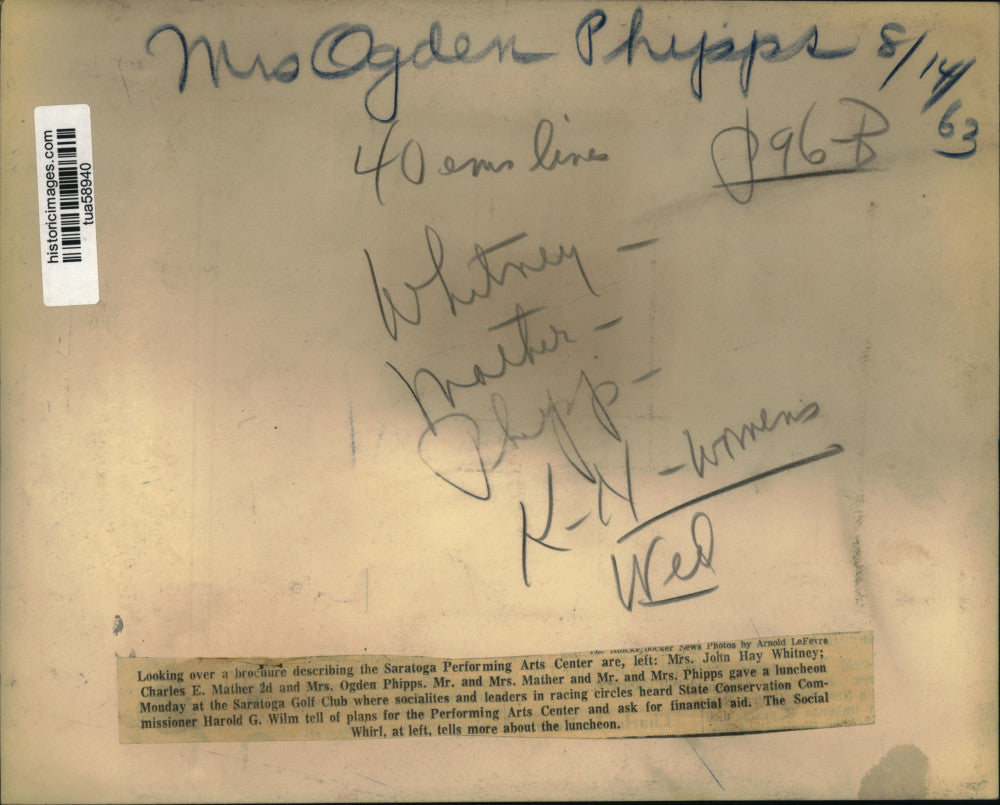 Mrs Ogden Phipps 8/14/63
40 ems lines 896-B
historicimages.com
tua58940
Whitney -
Mather -
Phipp -
K-N - womens
Wed
The Knickerbocker News Photos by Arnold LeFevre
Looking over a brochure describing the Saratoga Performing Arts Center are, left: Mrs. John Hay Whitney;
Charles E. Mather 2d and Mrs. Ogden Phipps. Mr. and Mrs. Mather and Mr. and Mrs. Phipps gave a luncheon
Monday at the Saratoga Golf Club where socialites and leaders in racing circles heard State Conservation Com-
missioner Harold G. Wilm tell of plans for the Performing Arts Center and ask for financial aid. The Social
Whirl, at left, tells more about the luncheon.